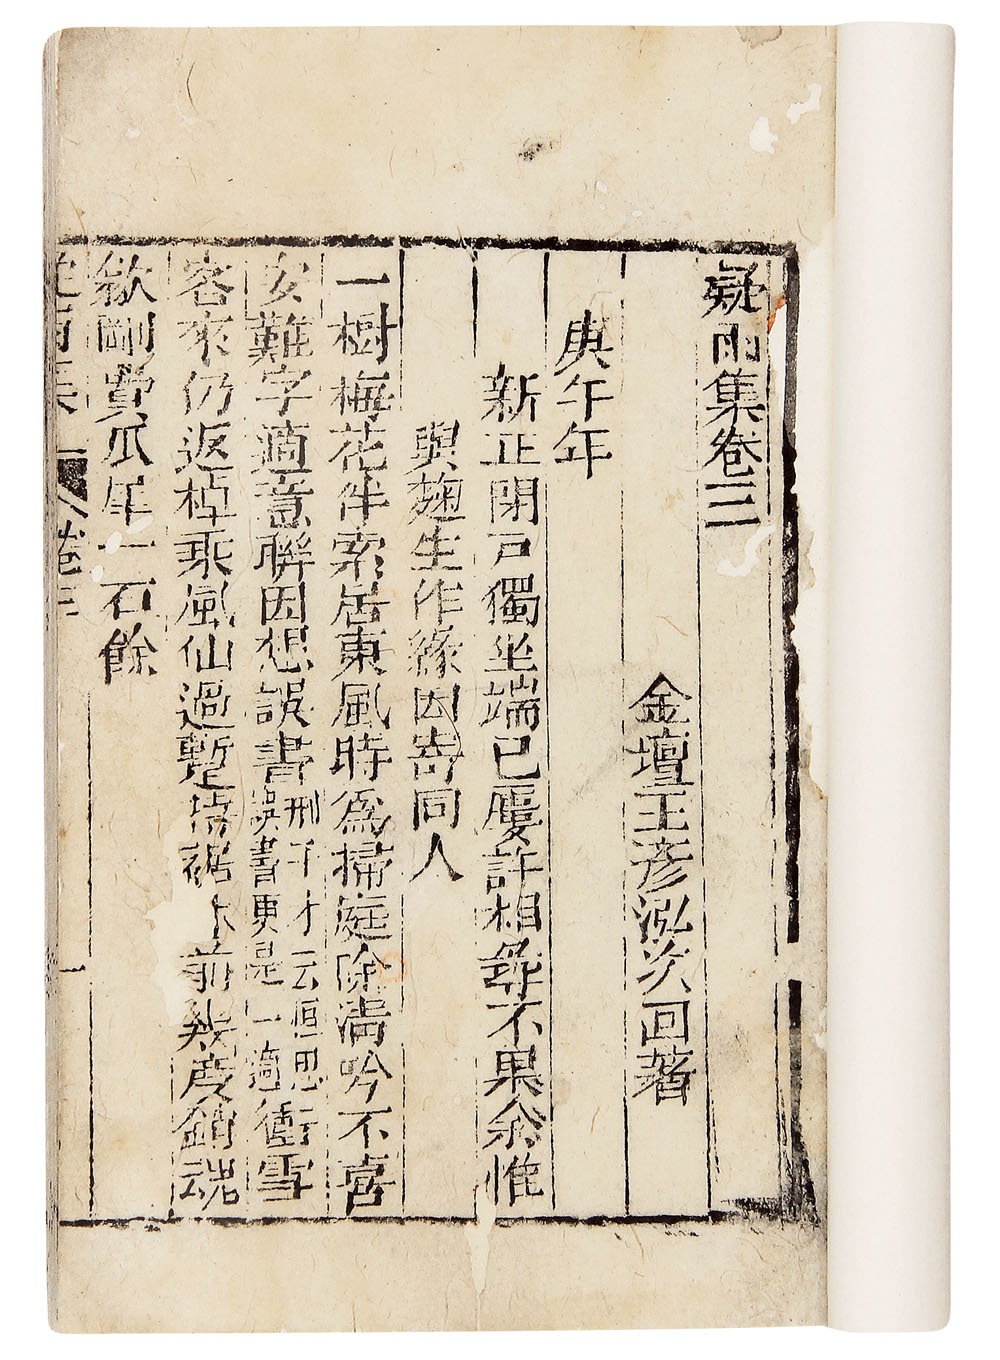 疑雨集卷三
金壇王彥泓次回著
庚午年
新正閉戸獨坐端已屢許相尋不果余惟
與麹生作緣因寄同人
一樹梅花伴索居東風時爲掃庭除清吟不喜
安難字適意聯因想誤書刑子才云恒思誤書更是一適衝雪
客來仍返棹乘風仙過暫持裾前幾度銷魂
飲剛費瓜犀一石餘
疑雨集 卷三 一